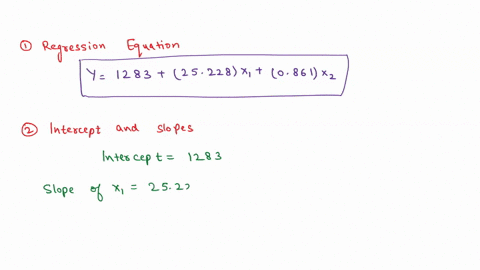 ① Regression Equation
Y = 1283 + (25.228) x₁ + (0.861) x₂
② Intercept and slopes
Intercept = 1283
Slope of x₁ = 25.22